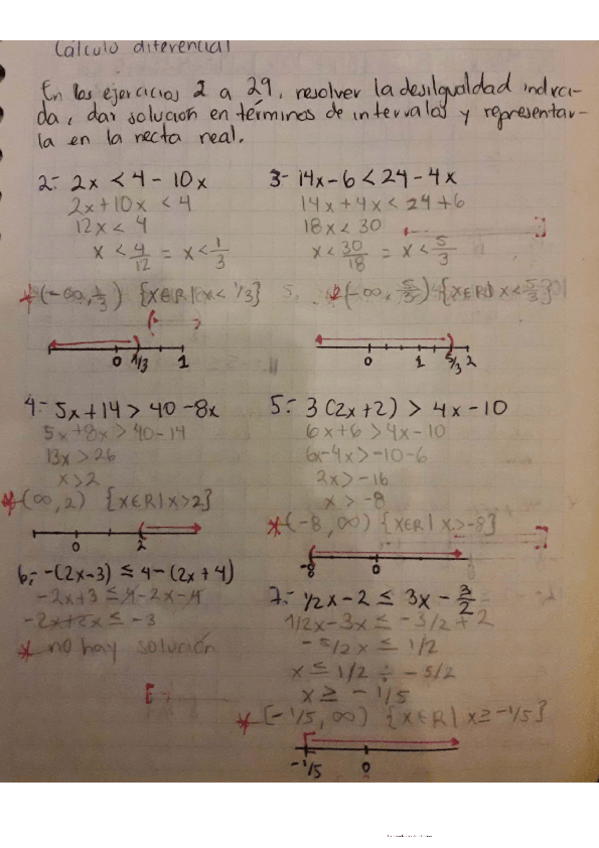 Cálculo diferencial
En los ejercicios 2 a 29, resolver la desigualdad indica-
da, dar solución en términos de intervalos y representar-
la en la recta real.
2.- 2x < 4 - 10x
2x + 10x < 4
12x < 4
x < 4/12 = x < 1/3
*(-∞, 1/3) {x∈R | x < 1/3}
0 1/3 1
3- 14x - 6 < 24 - 4x
14x + 4x < 24 + 6
18x < 30
x < 30/18 = x < 5/3
*(-∞, 5/3) {x∈R | x < 5/3}
0 1 5/3 2
4.- 5x + 14 > 40 - 8x
5x + 8x > 40 - 14
13x > 26
x > 2
*(∞, 2) {x∈R | x > 2}
0 2
5.- 3(2x+2) > 4x - 10
6x + 6 > 4x - 10
6x - 4x > -10 - 6
2x > -16
x > -8
*(-8, ∞) {x∈R | x > -8}
-8 0
6.- -(2x-3) ≤ 4 - (2x + 4)
-2x + 3 ≤ 4 - 2x - 4
-2x + 2x ≤ -3
* no hay solución
7.- 1/2x - 2 ≤ 3x - 3/2
1/2x - 3x ≤ -3/2 + 2
-5/2x ≤ 1/2
x ≤ 1/2 ÷ -5/2
x ≥ -1/5
*[-1/5, ∞) {x∈R | x ≥ -1/5}
-1/5 0